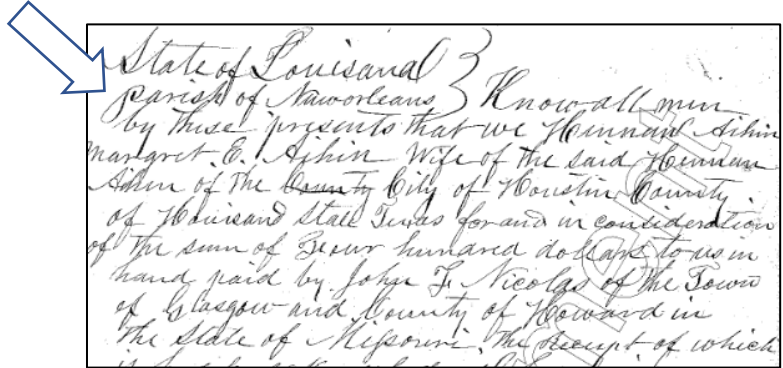 State of Louisana }
parish of Naworleans } Know all men
by these presents that we Hinnan Aikin
Margret. E. Aikin Wife of the said Hinnan
Aikin of the County City of Houstin County
of Houisand State Texas for and in consideration
of the sum of Four hundred dollars to us in
hand paid by John F. Nicolas of the Town
of Glasgow and County of Howard in
the State of Missouri, the receipt of which